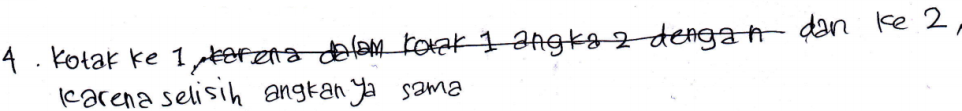 4. Kotak ke 1, karena dalam kotak 1 angka 2 dengan dan ke 2,
karena selisih angkanya sama